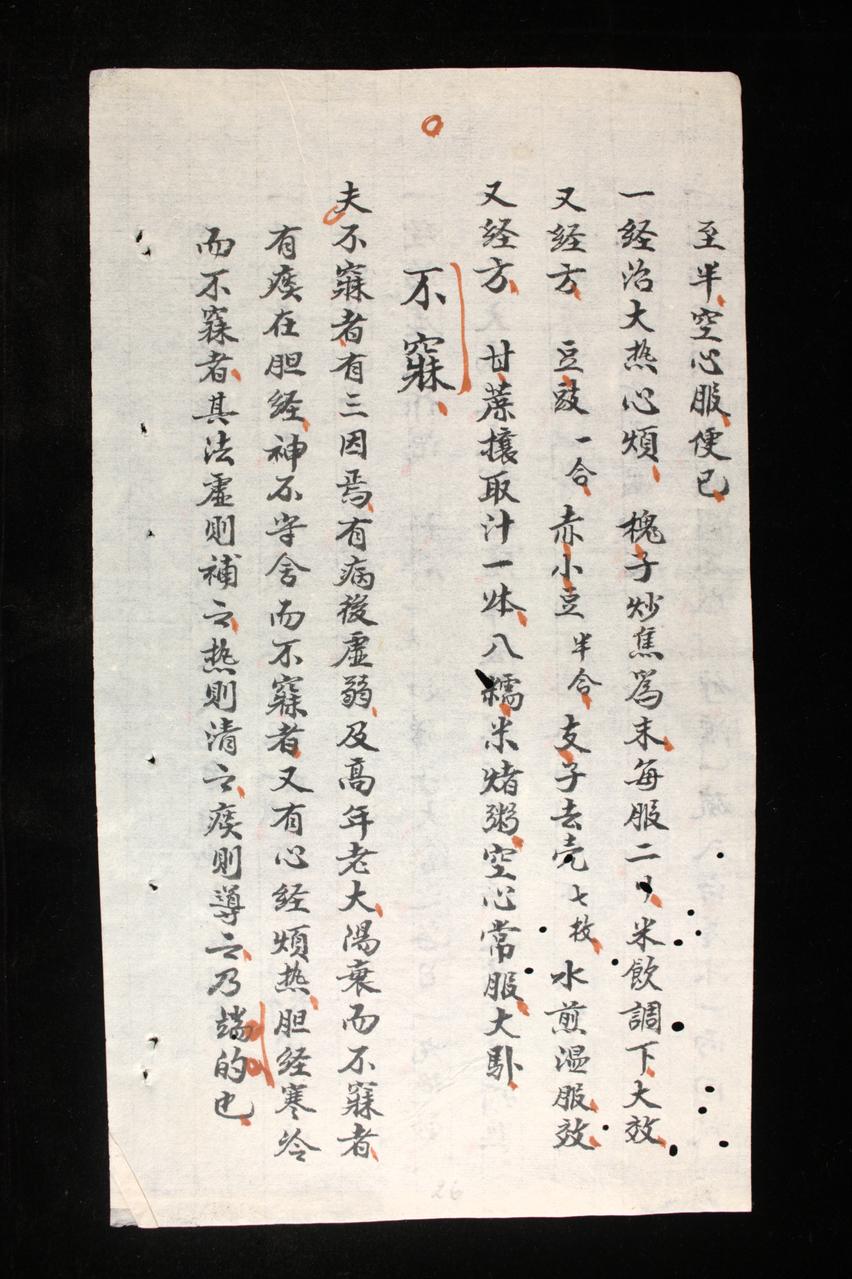 至半空心服便已
一经治大热心煩 槐子炒焦為末每服二 米飲調下大效
又经方 豆豉一合 赤小豆半合 支子去壳七枚 水煎温服效
又经方 甘蔗攘取汁一 八糯米煮粥空心常服大
不寐
夫不寐者有三因焉有病後虚弱及高年老大陽衰而不寐者
有痰在胆经神不守舍而不寐者又有心经煩热胆经寒冷
而不寐者其法虚則補之热則清之痰則導之乃端的也
26